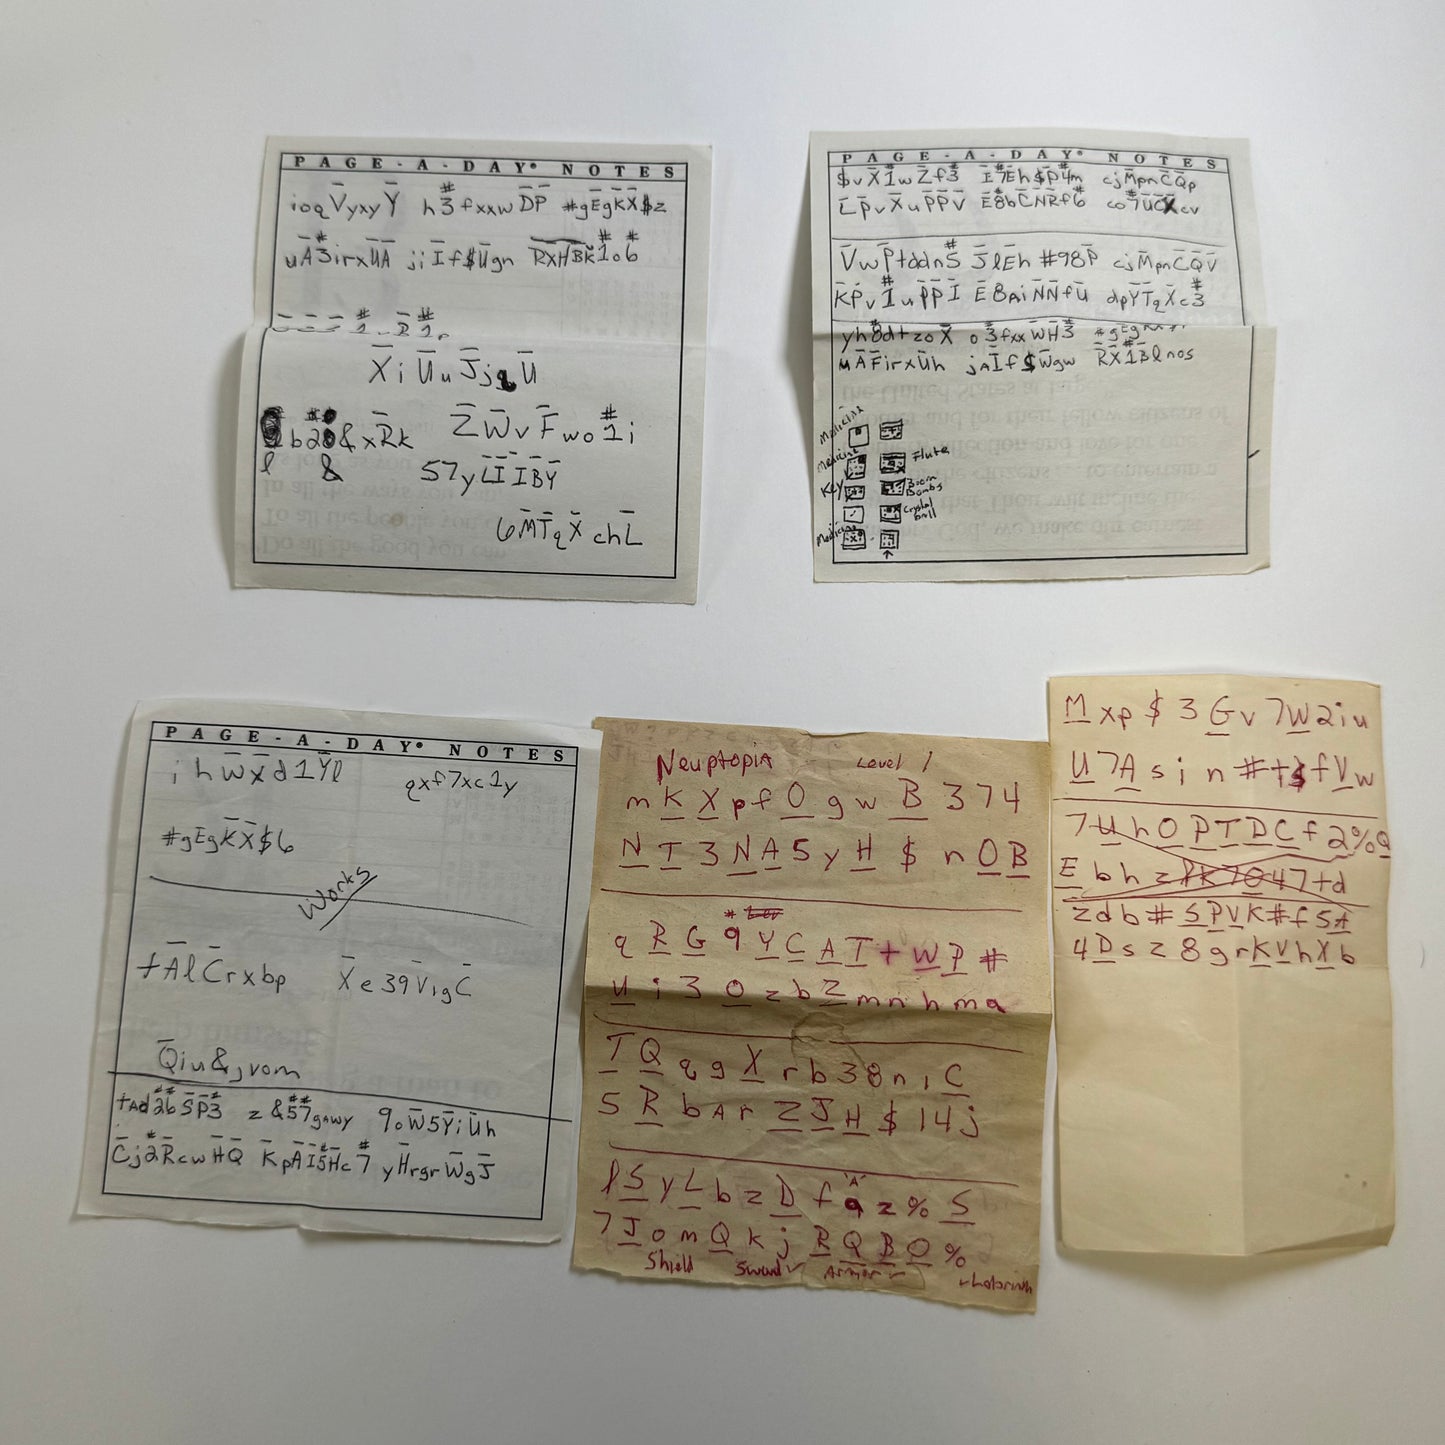 PAGE-A-DAY® NOTES
ioqV̄yxyȲ h3fxxwD̄P̄ #gĒgK̄X̄$z
uĀ3irxŪĀ jiĪf$Ūgn R̄X̄H̄B̄K̄1o6
X̄iŪuJ̄jqŪ
b2&xR̄k Z̄W̄vF̄wo1i
l & 57yL̄Ī ĪB̄Ȳ
6M̄T̄qX̄chL̄
PAGE-A-DAY® NOTES
$vX̄1wZ̄f3 Ī7Ēh$P̄4m cjM̄pnC̄Q̄p
L̄P̄vX̄uP̄P̄V̄ Ē8bC̄N̄R̄f6
V̄wP̄tddn5 J̄lĒh#98P̄ cjM̄pnC̄Q̄V̄
K̄P̄v1uP̄P̄Ī Ē8AiN̄N̄fŪ dpȲT̄qX̄c3
yh8dtzoX̄ o3fxxW̄H̄3
uĀF̄irxŪh jAĪf$W̄gw R̄X̄1B̄lnos
Medicine
Medicine Flute
Key Boom Bombs
Crystal ball
Medicine
PAGE-A-DAY® NOTES
ihw̄x̄d1Ȳl qxf7xc1y
#gĒgK̄X̄$6
Works
tĀlC̄rxbp X̄e39V̄igC̄
Q̄iu&jvom
tAd2bS̄P̄3 z&57gawy 9oW̄5ȲiŪh
C̄j2R̄cwH̄Q̄ K̄pĀĪ5H̄c7 yH̄rgrW̄gJ̄
Neuptopia Level 1
m K̲ X̲ p f O̲ g w B̲ 3 7 4
N̲ I̲ 3 N̲ A̲ 5 y H̲ $ n O̲ B̲
q R̲ G̲ 9 Y̲ C̲ A̲ T̲ + W̲ P̲ #
U̲ i 3 O̲ z b Z̲ m n h m q
T̲ Q̲ q g X̲ r b 3 8 n i C̲
5 R̲ b A r Z̲ J̲ H̲ $ 1 4 j
l S̲ y L̲ b z D̲ f q z % S̲
7 J̲ o m Q̲ k j R̲ Q̲ B̲ O̲ %
Shield Sword Armor
M̲ x p $ 3 G̲ v 7 W̲ 2 i u
U̲ 7 A̲ s i n # t f V̲ w
7 U̲ h O̲ P̲ T̲ D̲ C̲ f 2 % Q̲
E̲ b h z l K 7 O̲ 4 7 t d
z d b # S̲ P̲ V̲ K # f 5 A̲
4 D̲ s z 8 g r K̲ V̲ h X̲ b